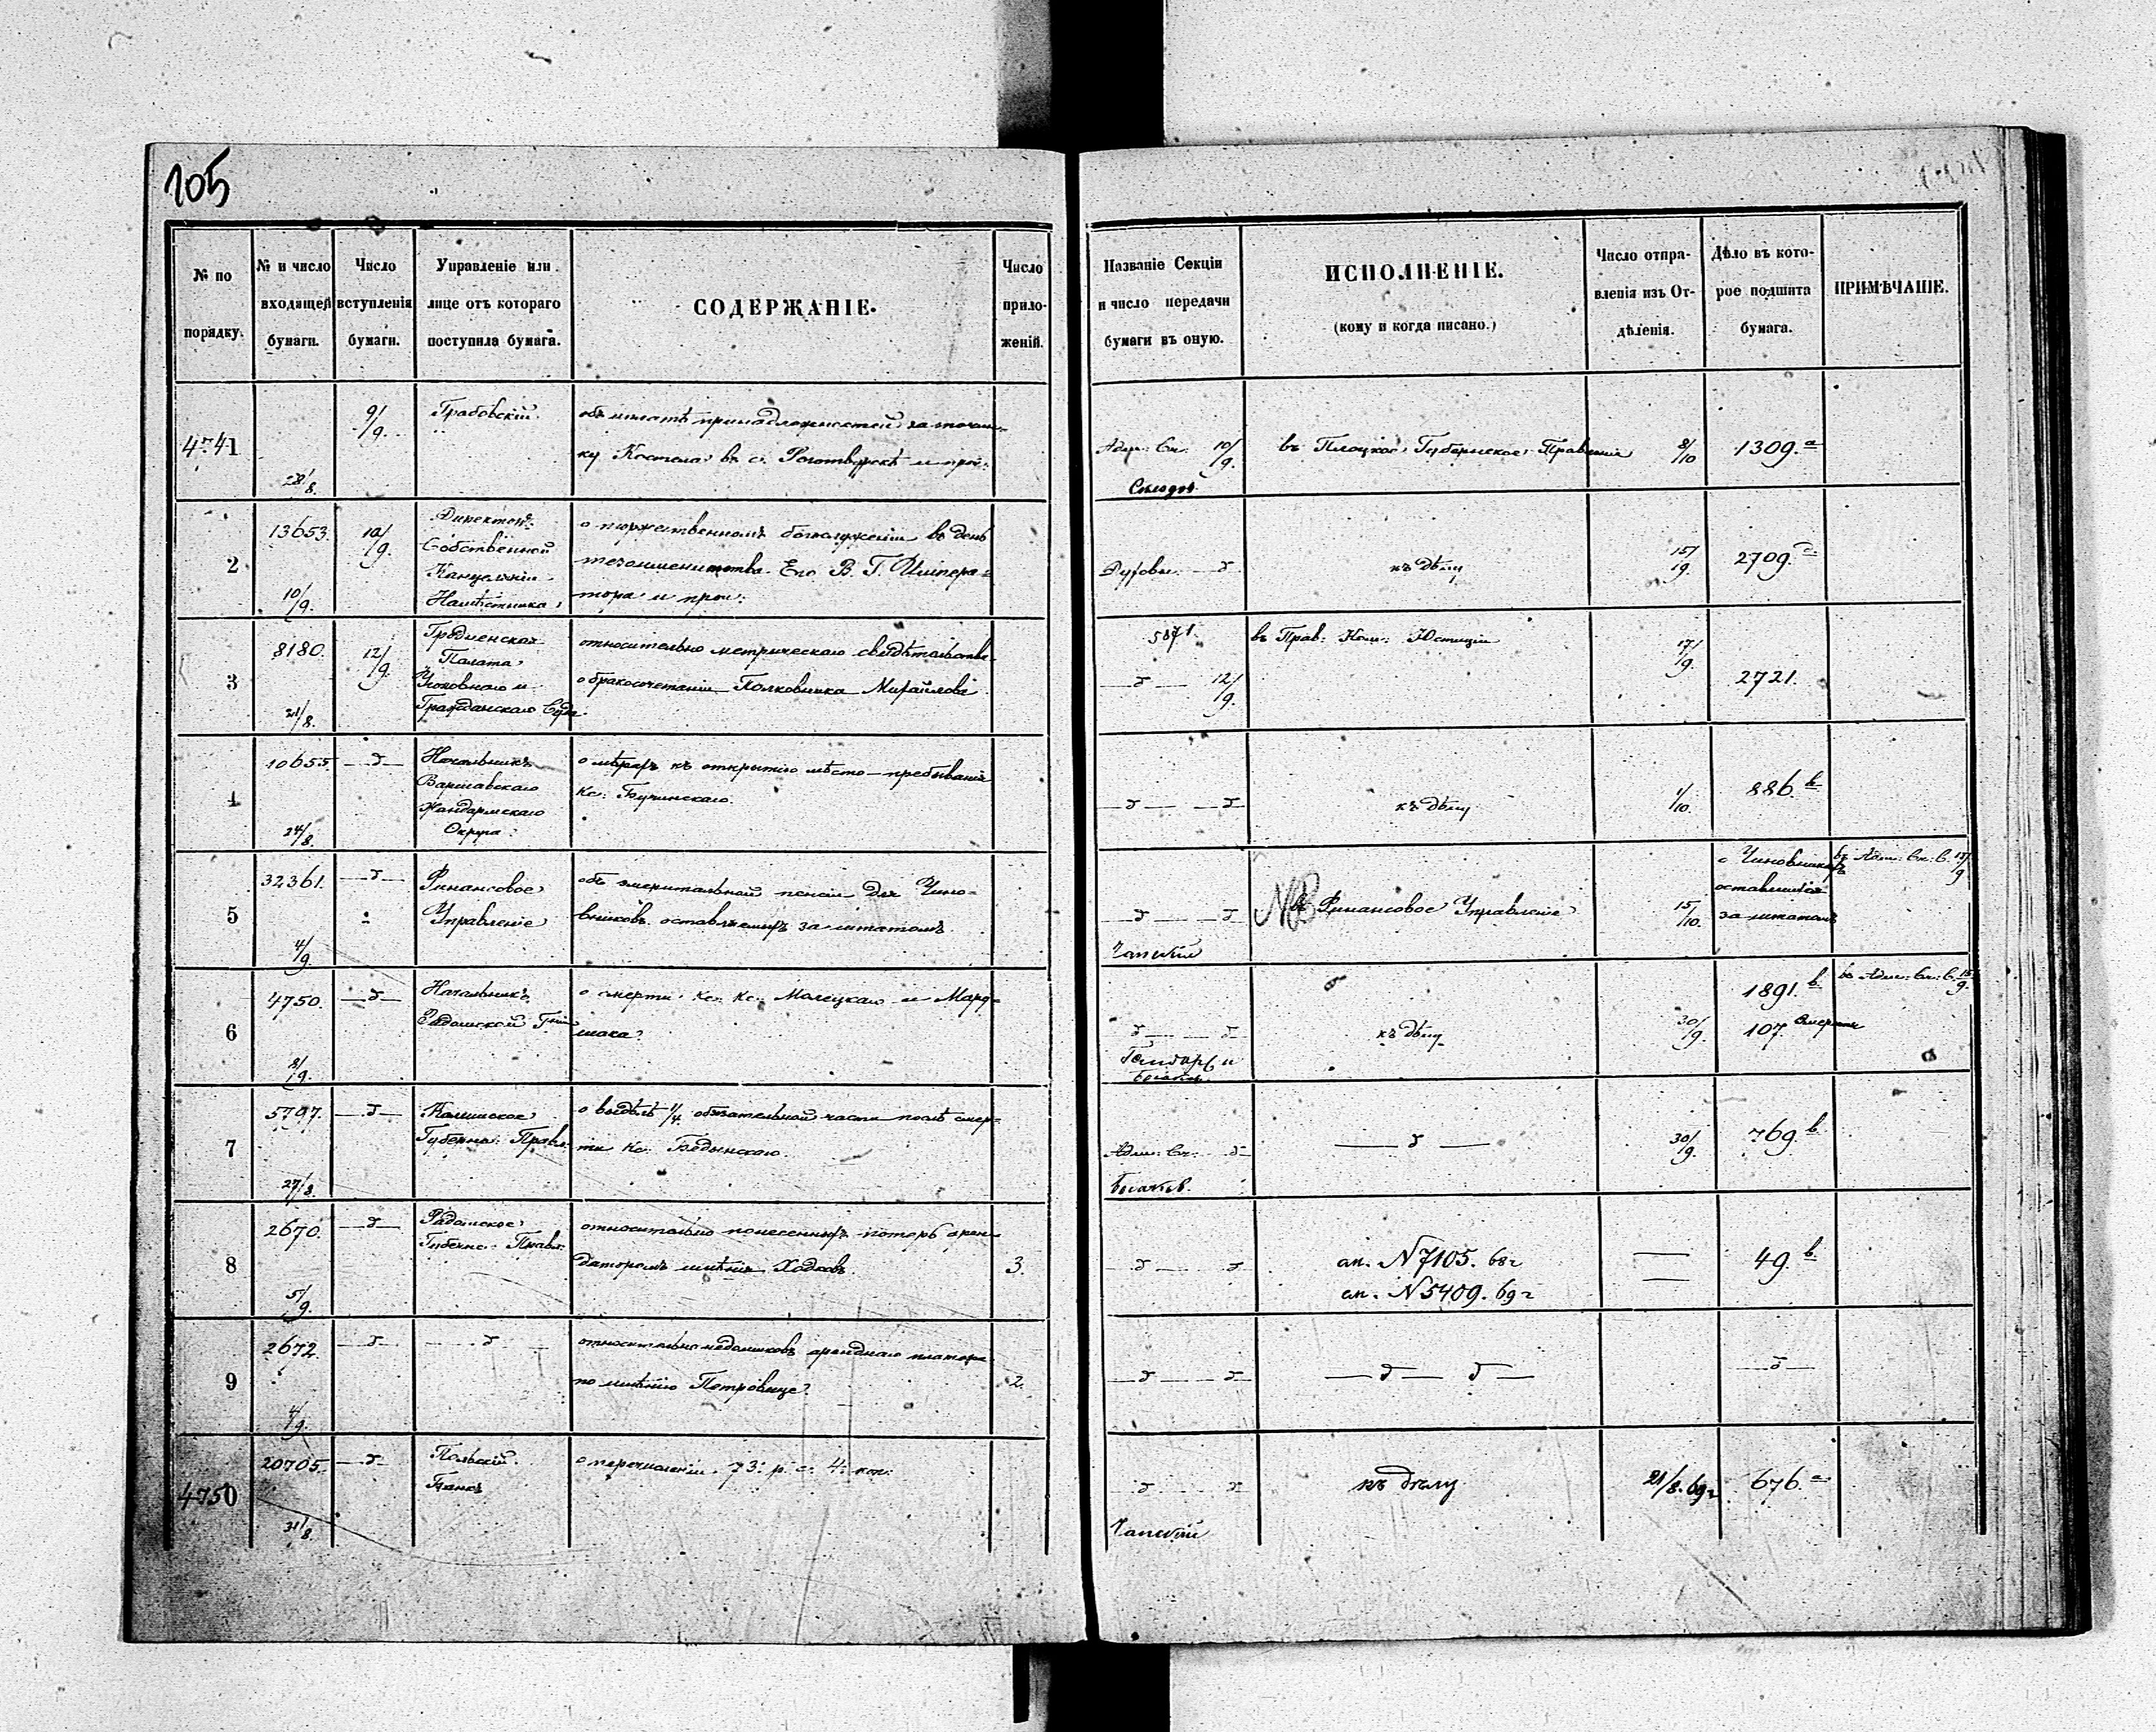 105
№ по порядку.
№ и число входящей бумаги.
Число вступленія бумаги.
Управленіе или лице отъ котораго поступила бумага.
СОДЕРЖАНІЕ.
Число приложеній.
Названіе Секціи и число передачи бумаги въ оную.
ИСПОЛНЕНІЕ.
(кому и когда писано.)
Число отправленія изъ Отдѣленія.
Дѣло въ которое подшита бумага.
ПРИМѢЧАНІЕ.
4741
28/8.
9/9.
Грабовскій
ку Костела въ с. и проч:
Адм: Ск: 10/9.
въ Плоцкое Губернское Правленіе
8/10
1309. а
2
13653.
10/9.
10/9.
Собственной
Канцеляріи
Намѣстника
о торжественномъ богослуженіи въ день
тезоименитства Его В. Г. Импера=
тора и проч:
Духовн. — д
къ дѣлу
15/9.
2709.
3
8180.
21/8.
12/9.
Гродненская
Палата
Уголовнаго и
Гражданскаго Суда
относительно метрическаго свидѣтельства
о бракосочетаніи Полковника Михайлова
5871.
— д — 12/9.
въ Прав: Ком: Юстиціи
17/9.
2721.
4
10655.
24/8.
— д —
Начальникъ
Варшавскаго
Жандармскаго
Округа
о мѣрахъ къ открытію мѣсто-пребыванія
Кс: Бучинскаго.
— д — — д —
къ дѣлу
1/10.
886. в
5
32361.
4/9.
— д —
Финансовое
Управленіе
объ эмеритальной пенсіи для Чино=
вниковъ оставляемыхъ за штатомъ.
— д — — д
Чапскій
NB въ Финансовое Управленіе
15/10.
о Чиновникахъ
оставшихся
за штатомъ
въ Адм: Ск: С. 13/9
6
4750.
8/9.
— д —
Начальникъ
Радомской Гніи
о смерти Кс. Кс. Малецкаго и Мард=
шака
д — — д
къ дѣлу
30/9.
1891. в
107.
въ Адм: Ск: С. 15/9.
7
5797.
27/8.
— д —
Калишское
Губернс: Правл:
о выдѣлѣ 1/4 обязательной части послѣ смер=
ти Кс: Бѣдынскаго.
Адм: Ск: — д
— д —
30/9.
769. в
8
2670.
5/9.
— д —
Радомское
Губернс: Правл:
относительно понесенныхъ потерь арен=
даторомъ имѣнія Ходковъ.
3.
— д — — д
ан. N 7105. 68 г
ан. N 5409. 69 г
49. в
9
2672.
4/9.
— д —
— д —
относительно недоимковъ аренднаго платежа
по имѣнію Петровице
2.
— д — — д —
— д — д —
— д —
4750
20705.
31/8.
— д
Польскій
Банкъ
о перечисленіи 73: р. с. 4: коп:
— д — — д
Чапскій
къ дѣлу
21/8. 69 г
676. а